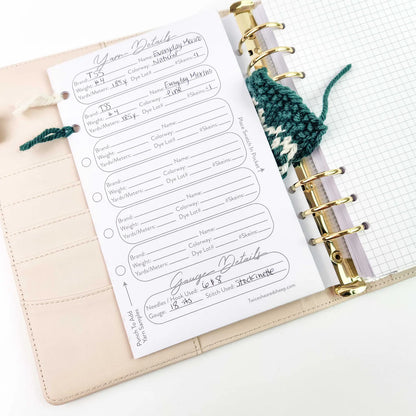 Yarn Details
Brand: TSS Name: Everyday Merino
Weight: #4 Colorway: Natural
Yards/Meters: 185y Dye Lot#: #Skeins: ~1
Brand: TSS Name: Everyday Merino
Weight: #4 Colorway: Pine
Yards/Meters: 185y Dye Lot#: #Skeins: ~1
Brand: Name:
Weight: Colorway:
Yards/Meters: Dye Lot#: #Skeins:
Brand: Name:
Weight: Colorway:
Yards/Meters: Dye Lot#: #Skeins:
Brand: Name:
Weight: Colorway:
Yards/Meters: Dye Lot#: #Skeins:
Brand: Name:
Weight: Colorway:
Yards/Meters: Dye Lot#: #Skeins:
Place Swatch In Pocket
Gauge Details
Needles / Hook Used: 6 & 8
Gauge: 18 sts Stitch Used: Stockinette
Punch To Add
Yarn Samples
Twosheasedsheep.com